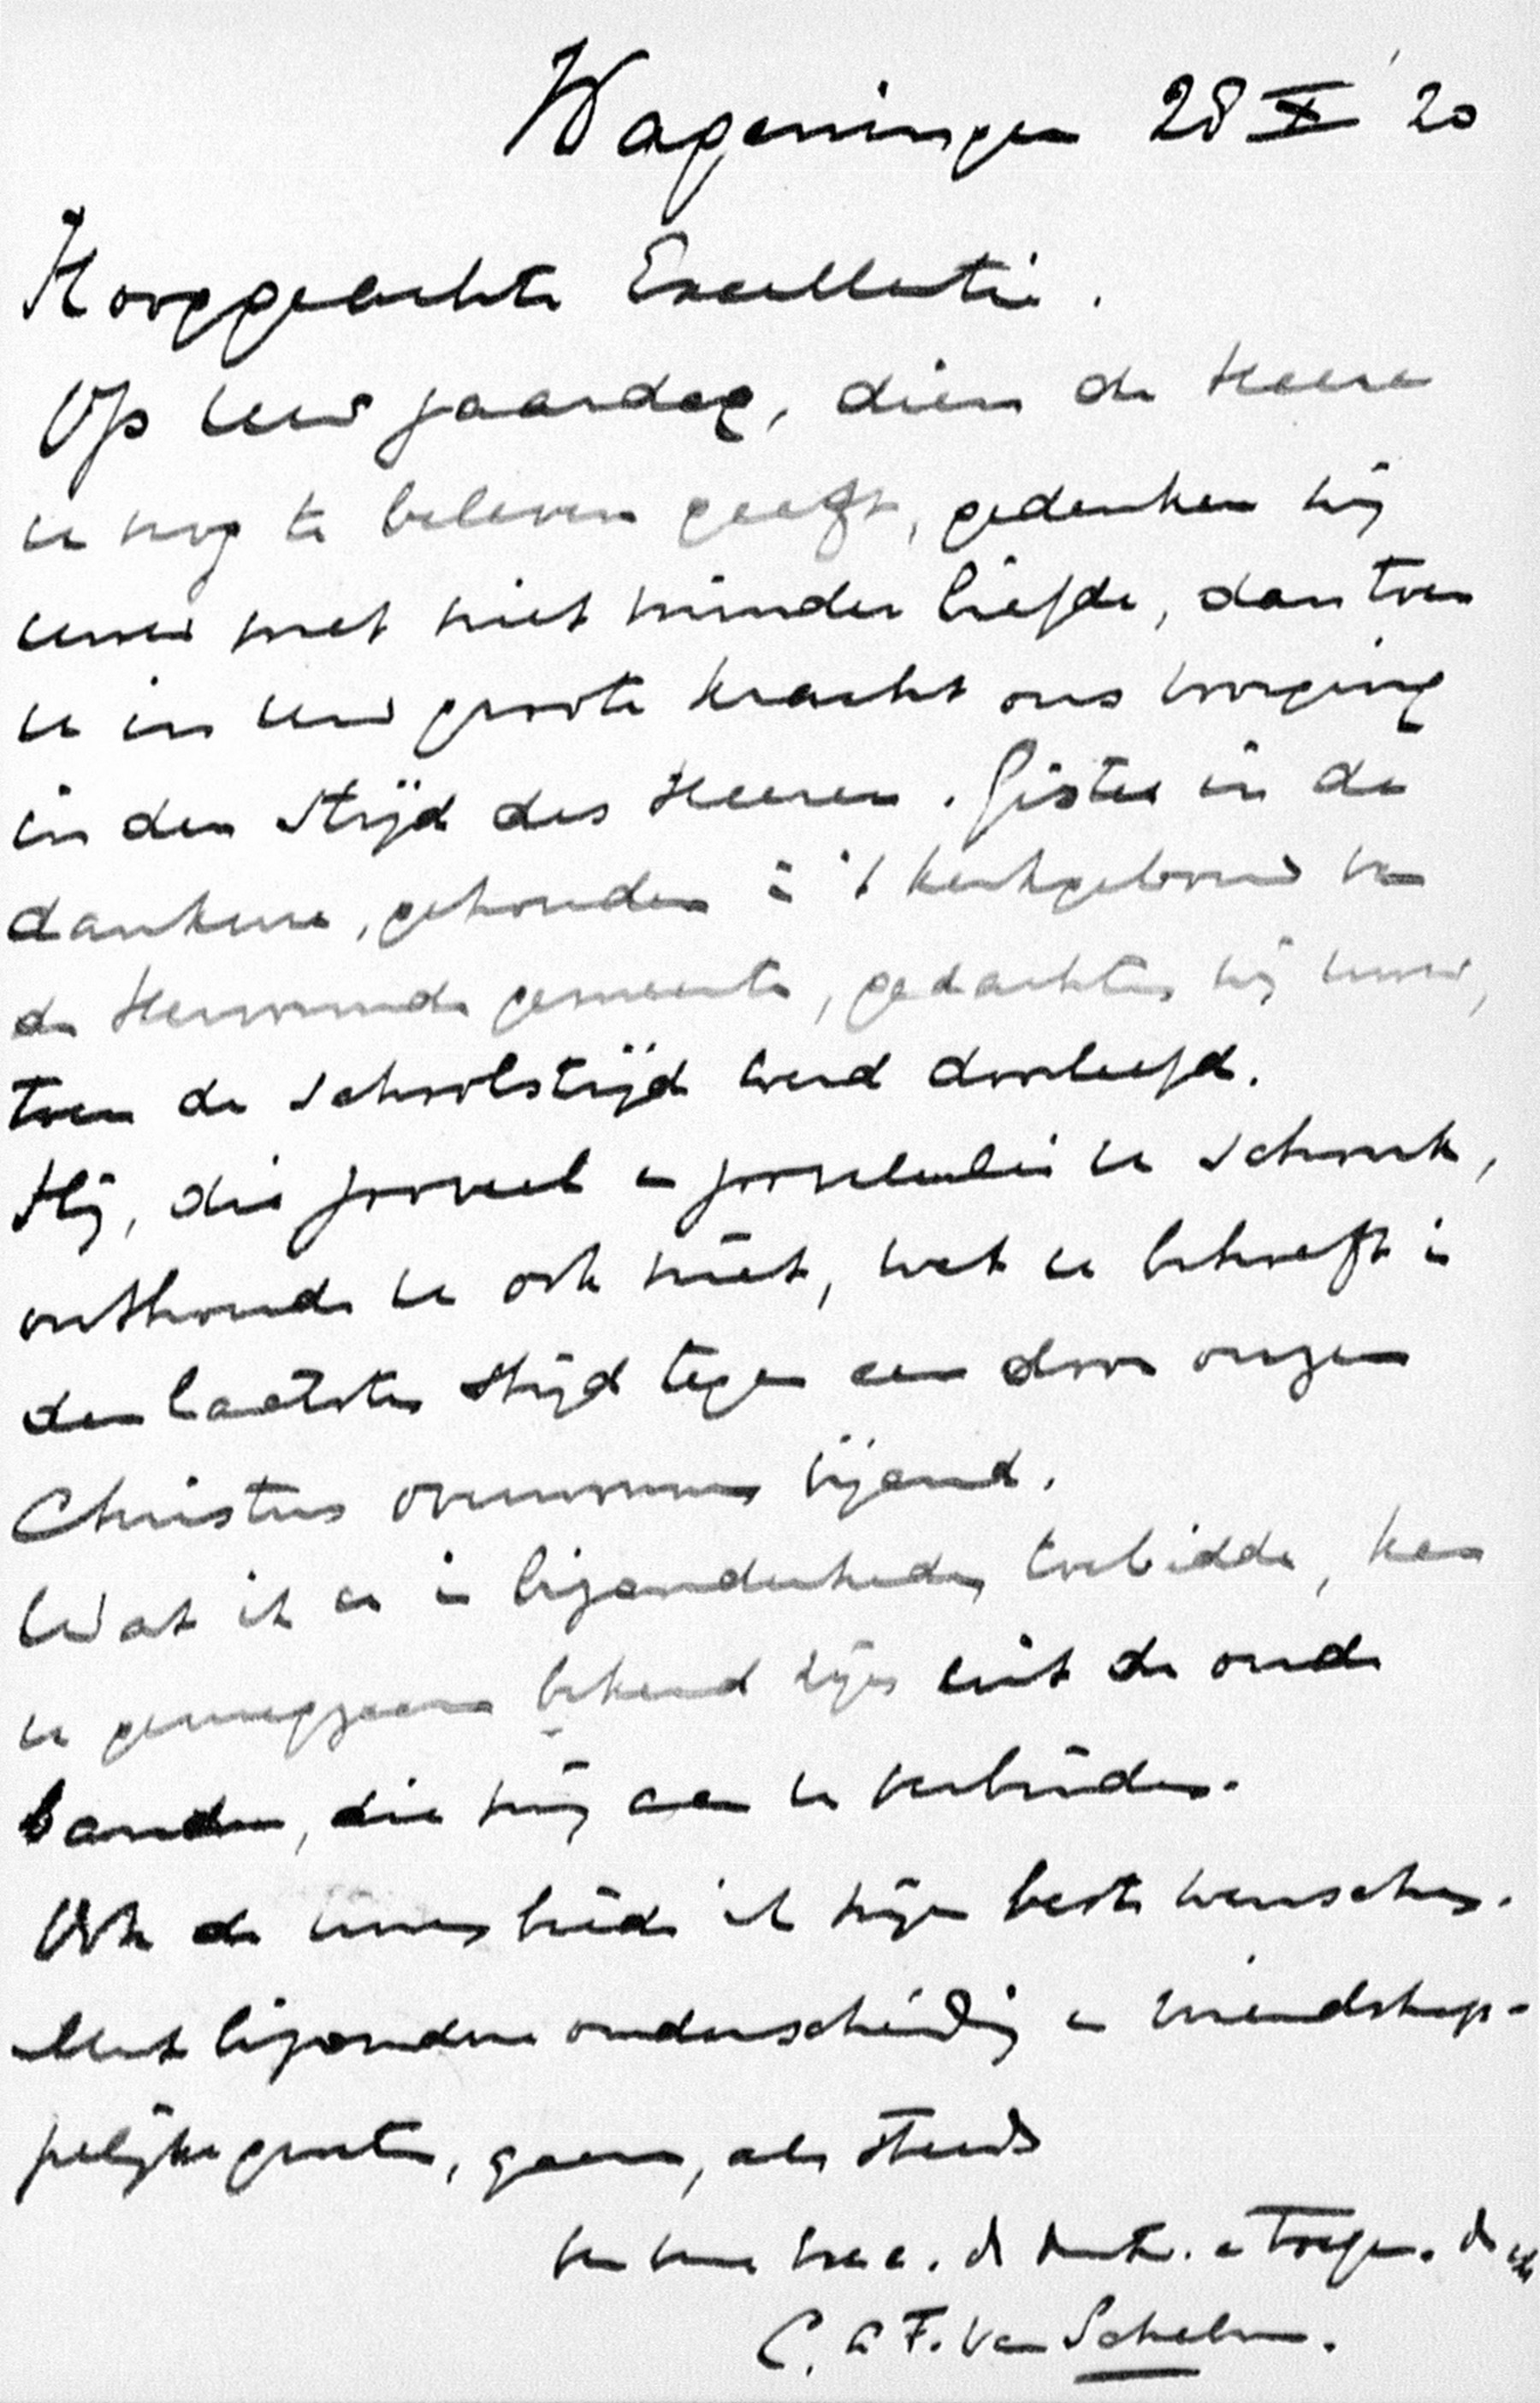 Wageningen 28 X '20
Hooggeachte Excellentie.
Op Uw jaardag, dien de Heere
U nog te beleven geeft, gedenken wij
Uwer met niet minder liefde, dan toen
U in Uw groote kracht ons voorging
in den strijd des Heeren. Gister in de
dankure, gehouden in 't kerkgebouw van
de Hervormde gemeente, gedachten wij Uwer,
toen de schoolstrijd werd doorleefd.
Hij, die zooveel en zoovelerlei U schonk,
onthoude U ook niet, wat U behoeft in
den laatsten strijd tegen een door onzen
Christus overwonnen vijand.
Wat ik U in bijzonderheden toebidde, kan
U genoegzaam bekend zijn uit de oude
banden, die mij aan U verbinden.
Ook de Uwen biede ik mijn beste wenschen.
Met bijzondere onderscheiding en vriendschap-
pelijke groeten, gaarne, als steeds
C. A F. van Schelven.